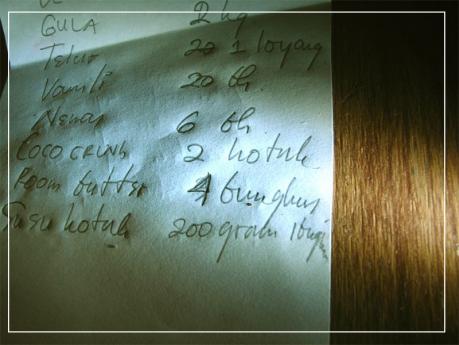 GULA 2 kg
Telur 1 loyang
Vanili 20 bh.
Nenas 6 bh
COCO CRUNCH 2 kotak
Room butter 4 bungkus
Susu kotak 200 gram